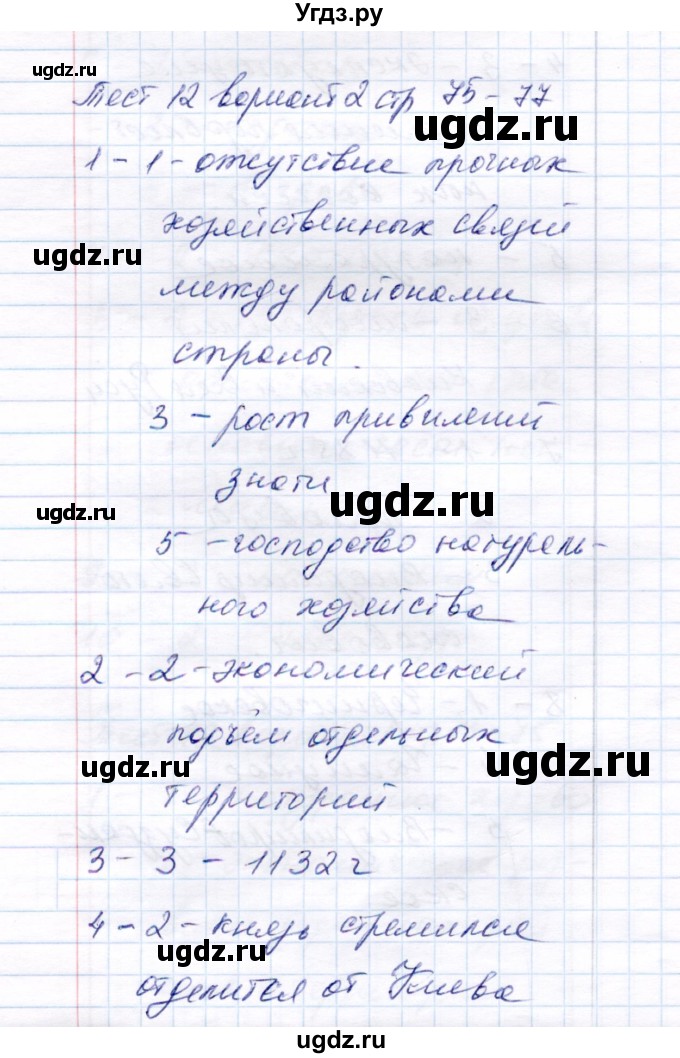 Угдз.ру
ugdz.ru
Тест 12 вариант 2 стр 75-77
ugdz.ru
1-1-отсутствие прочных
ugdz.ru
хозяйственных связей
ugdz.ru
между районами
страны.
3 - рост привилегий
знати
ugdz.ru
ugdz.ru
5 - господство натураль-
ного хозяйства
2 - 2 - экономический
подъём отдельных
ugdz.ru
ugdz.ru
территорий
3 - 3 - 1132 г
4 - 2 - князь стремился
ugdz.ru
отделится от Киева
ugdz.ru